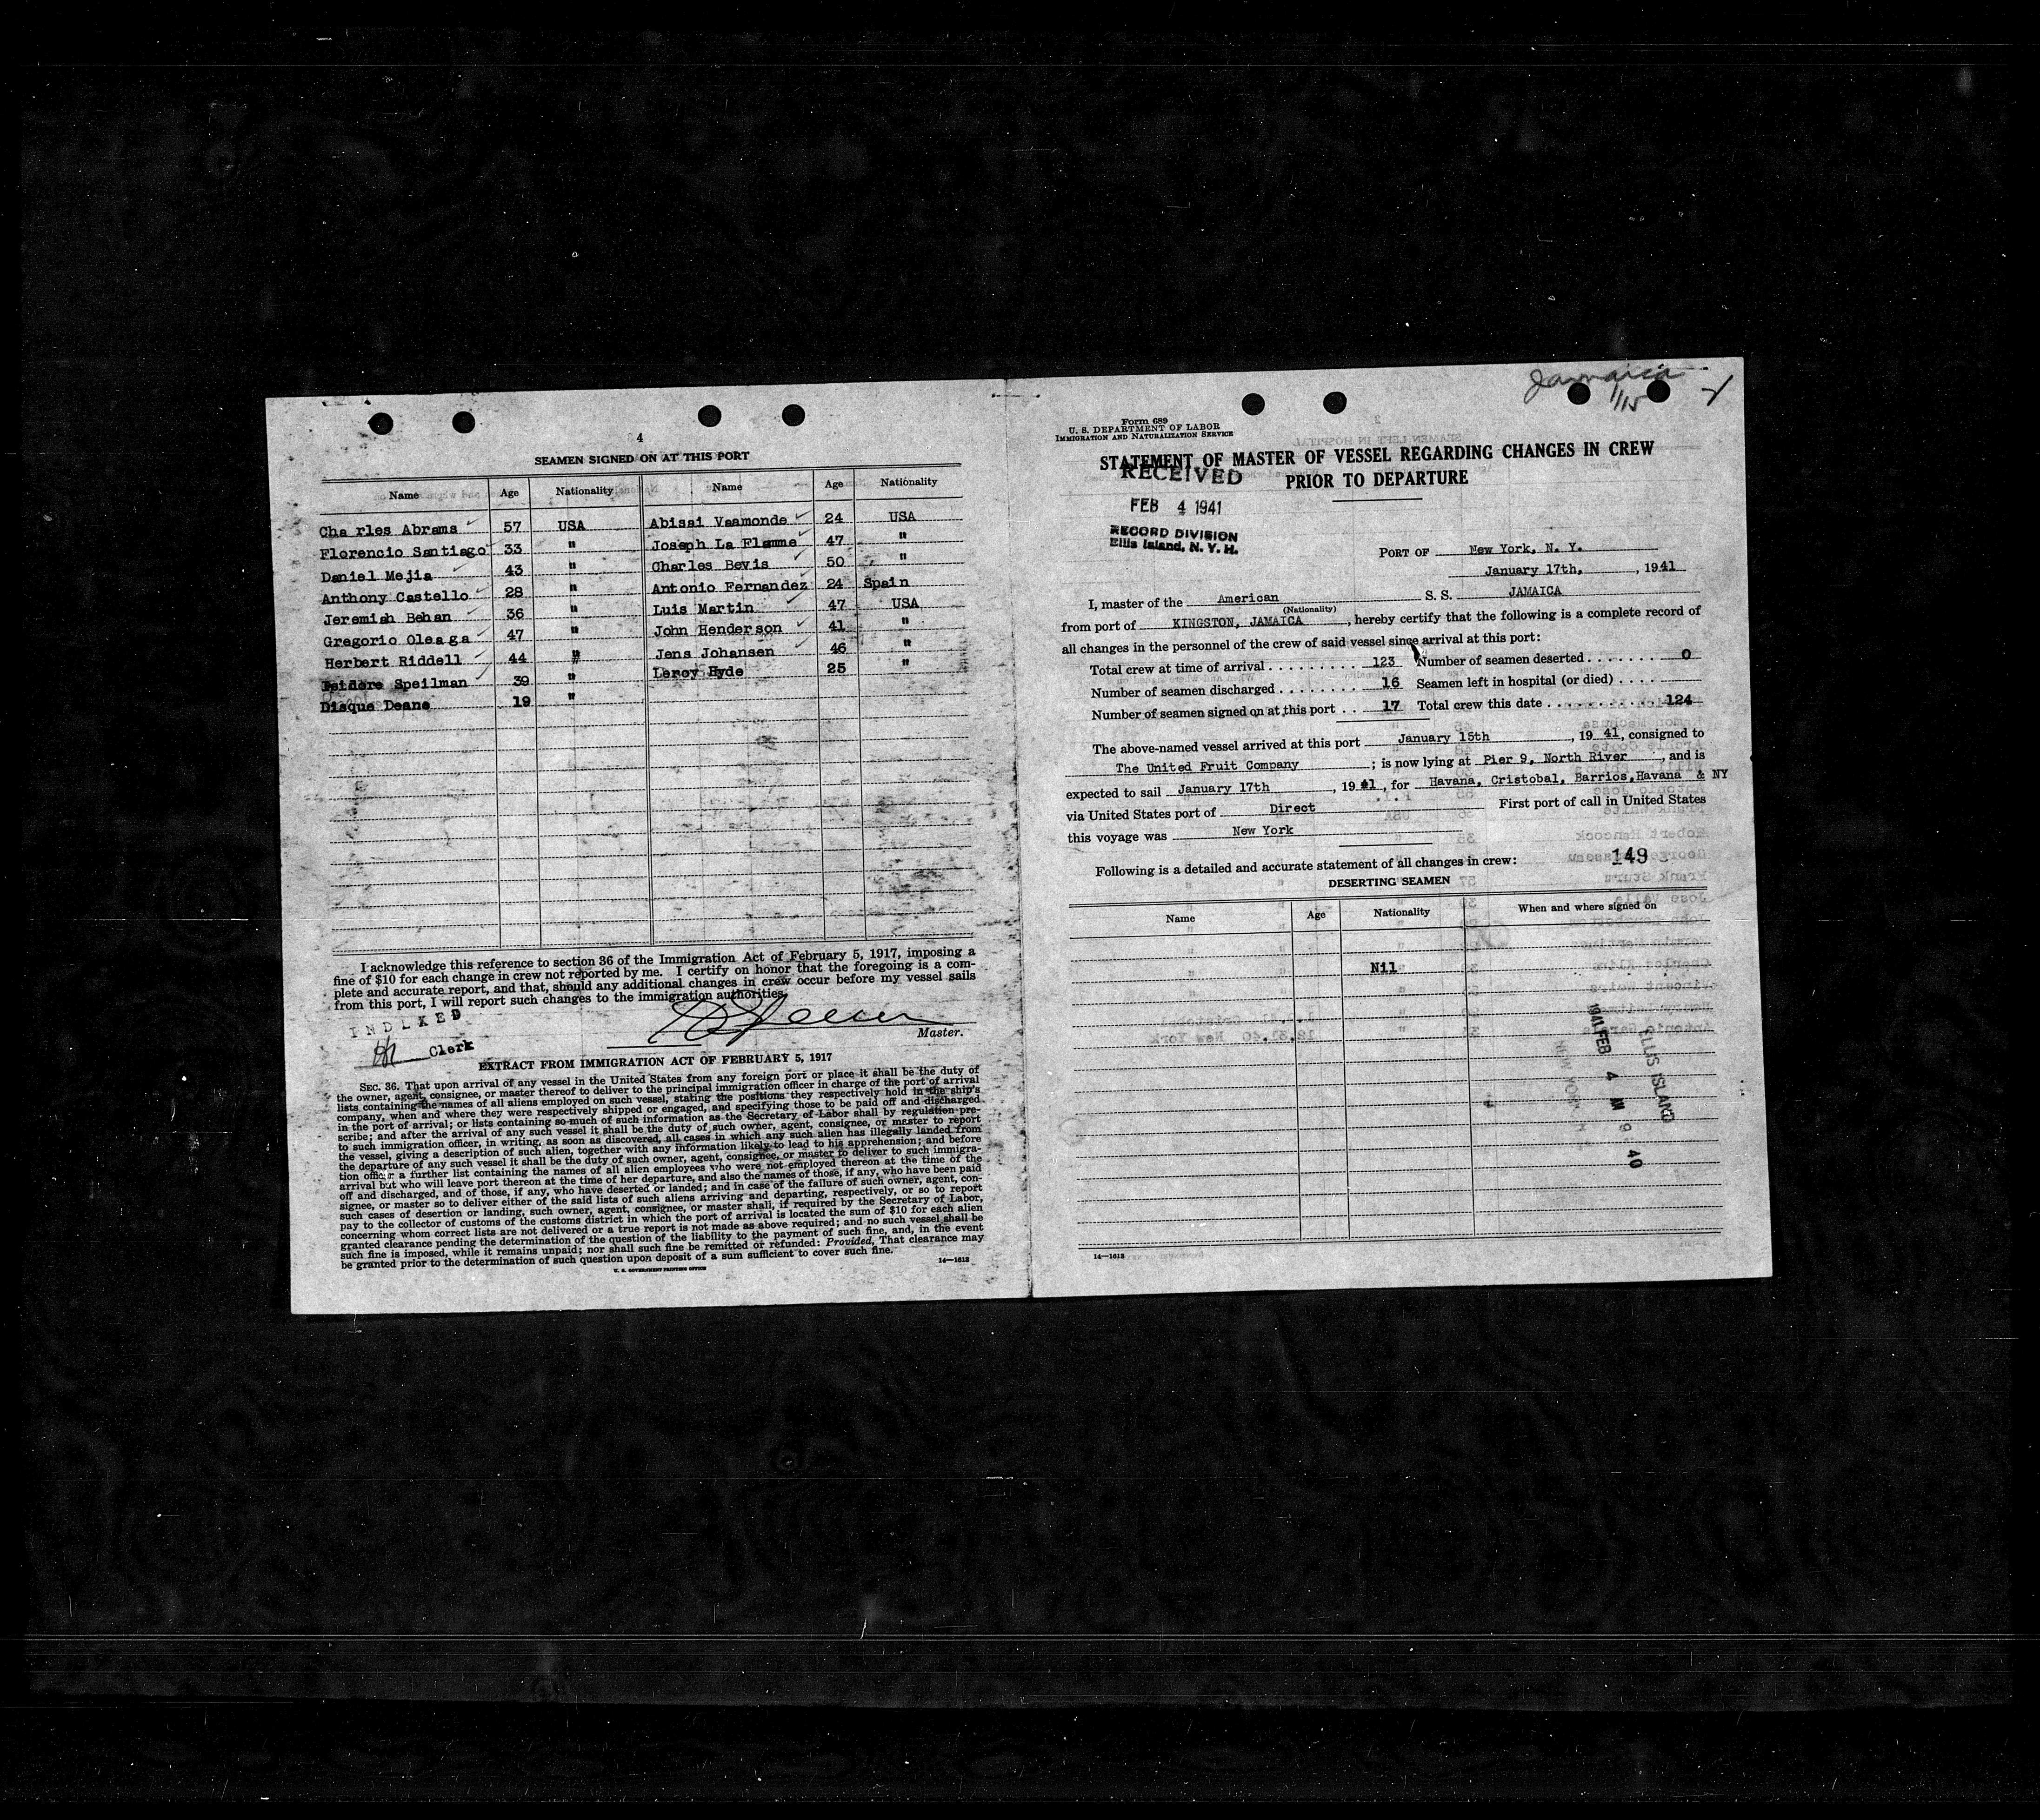 4
SEAMEN SIGNED ON AT THIS PORT
Name Age Nationality Name Age Nationality
Cha rles Abrams 57 USA Abisai Vaamonde 24 USA
Florencio Santiago 33 " Joseph La Flamme 47 "
Daniel Mejia 43 " Charles Bevis 50 "
Anthony Castello 28 " Antonio Fernandez 24 Spain
Jeremiah Behan 36 " Luis Martin 47 USA
Gregorio Oleaga 47 " John Henderson 41 "
Herbert Riddell 44 " Jens Johansen 46 "
Isidore Speilman 39 " Leroy Hyde 25 "
Disque Deane 19 "
I acknowledge this reference to section 36 of the Immigration Act of February 5, 1917, imposing a
fine of $10 for each change in crew not reported by me. I certify on honor that the foregoing is a com-
plete and accurate report, and that, should any additional changes in crew occur before my vessel sails
from this port, I will report such changes to the immigration authorities.
Master.
INDEXED
Clerk
EXTRACT FROM IMMIGRATION ACT OF FEBRUARY 5, 1917
SEC. 36. That upon arrival of any vessel in the United States from any foreign port or place it shall be the duty of
the owner, agent, consignee, or master thereof to deliver to the principal immigration officer in charge of the port of arrival
lists containing the names of all aliens employed on such vessel, stating the positions they respectively hold in the ship's
company, when and where they were respectively shipped or engaged, and specifying those to be paid off and discharged
in the port of arrival; or lists containing so much of such information as the Secretary of Labor shall by regulation pre-
scribe; and after the arrival of any such vessel it shall be the duty of such owner, agent, consignee, or master to report
to such immigration officer, in writing, as soon as discovered, all cases in which any such alien has illegally landed from
the vessel, giving a description of such alien, together with any information likely to lead to his apprehension; and before
the departure of any such vessel it shall be the duty of such owner, agent, consignee, or master to deliver to such immigra-
tion officer a further list containing the names of all alien employees who were not employed thereon at the time of the
arrival but who will leave port thereon at the time of her departure, and also the names of those, if any, who have been paid
off and discharged, and of those, if any, who have deserted or landed; and in case of the failure of such owner, agent, con-
signee, or master so to deliver either of the said lists of such aliens arriving and departing, respectively, or so to report
such cases of desertion or landing, such owner, agent, consignee, or master shall, if required by the Secretary of Labor,
pay to the collector of customs of the customs district in which the port of arrival is located the sum of $10 for each alien
concerning whom correct lists are not delivered or a true report is not made as above required; and no such vessel shall be
granted clearance pending the determination of the question of the liability to the payment of such fine, and, in the event
such fine is imposed, while it remains unpaid; nor shall such fine be remitted or refunded: Provided, That clearance may
be granted prior to the determination of such question upon deposit of a sum sufficient to cover such fine.
U. S. GOVERNMENT PRINTING OFFICE 14—1613
Jamaica
1/15
Form 689
U. S. DEPARTMENT OF LABOR
IMMIGRATION AND NATURALIZATION SERVICE
STATEMENT OF MASTER OF VESSEL REGARDING CHANGES IN CREW
PRIOR TO DEPARTURE
RECEIVED
FEB 4 1941
RECORD DIVISION
Ellis Island, N. Y. H.
PORT OF New York, N. Y.
January 17th, , 1941
I, master of the American S. S. JAMAICA
(Nationality)
from port of KINGSTON, JAMAICA, hereby certify that the following is a complete record of
all changes in the personnel of the crew of said vessel since arrival at this port:
Total crew at time of arrival . . . . . . . . . 123 Number of seamen deserted . . . . . . . 0
Number of seamen discharged . . . . . . . . 16 Seamen left in hospital (or died) . . . .
Number of seamen signed on at this port . . 17 Total crew this date . . . . . . . . . . 124
The above-named vessel arrived at this port January 15th , 19 41, consigned to
The United Fruit Company ; is now lying at Pier 9, North River , and is
expected to sail January 17th , 19 41, for Havana, Cristobal, Barrios,Havana & NY
via United States port of Direct First port of call in United States
this voyage was New York
149
Following is a detailed and accurate statement of all changes in crew:
DESERTING SEAMEN
Name Age Nationality When and where signed on
Nil
1941 FEB 4 AM 9 40
ELLIS ISLAND
NEW YORK
14—1613